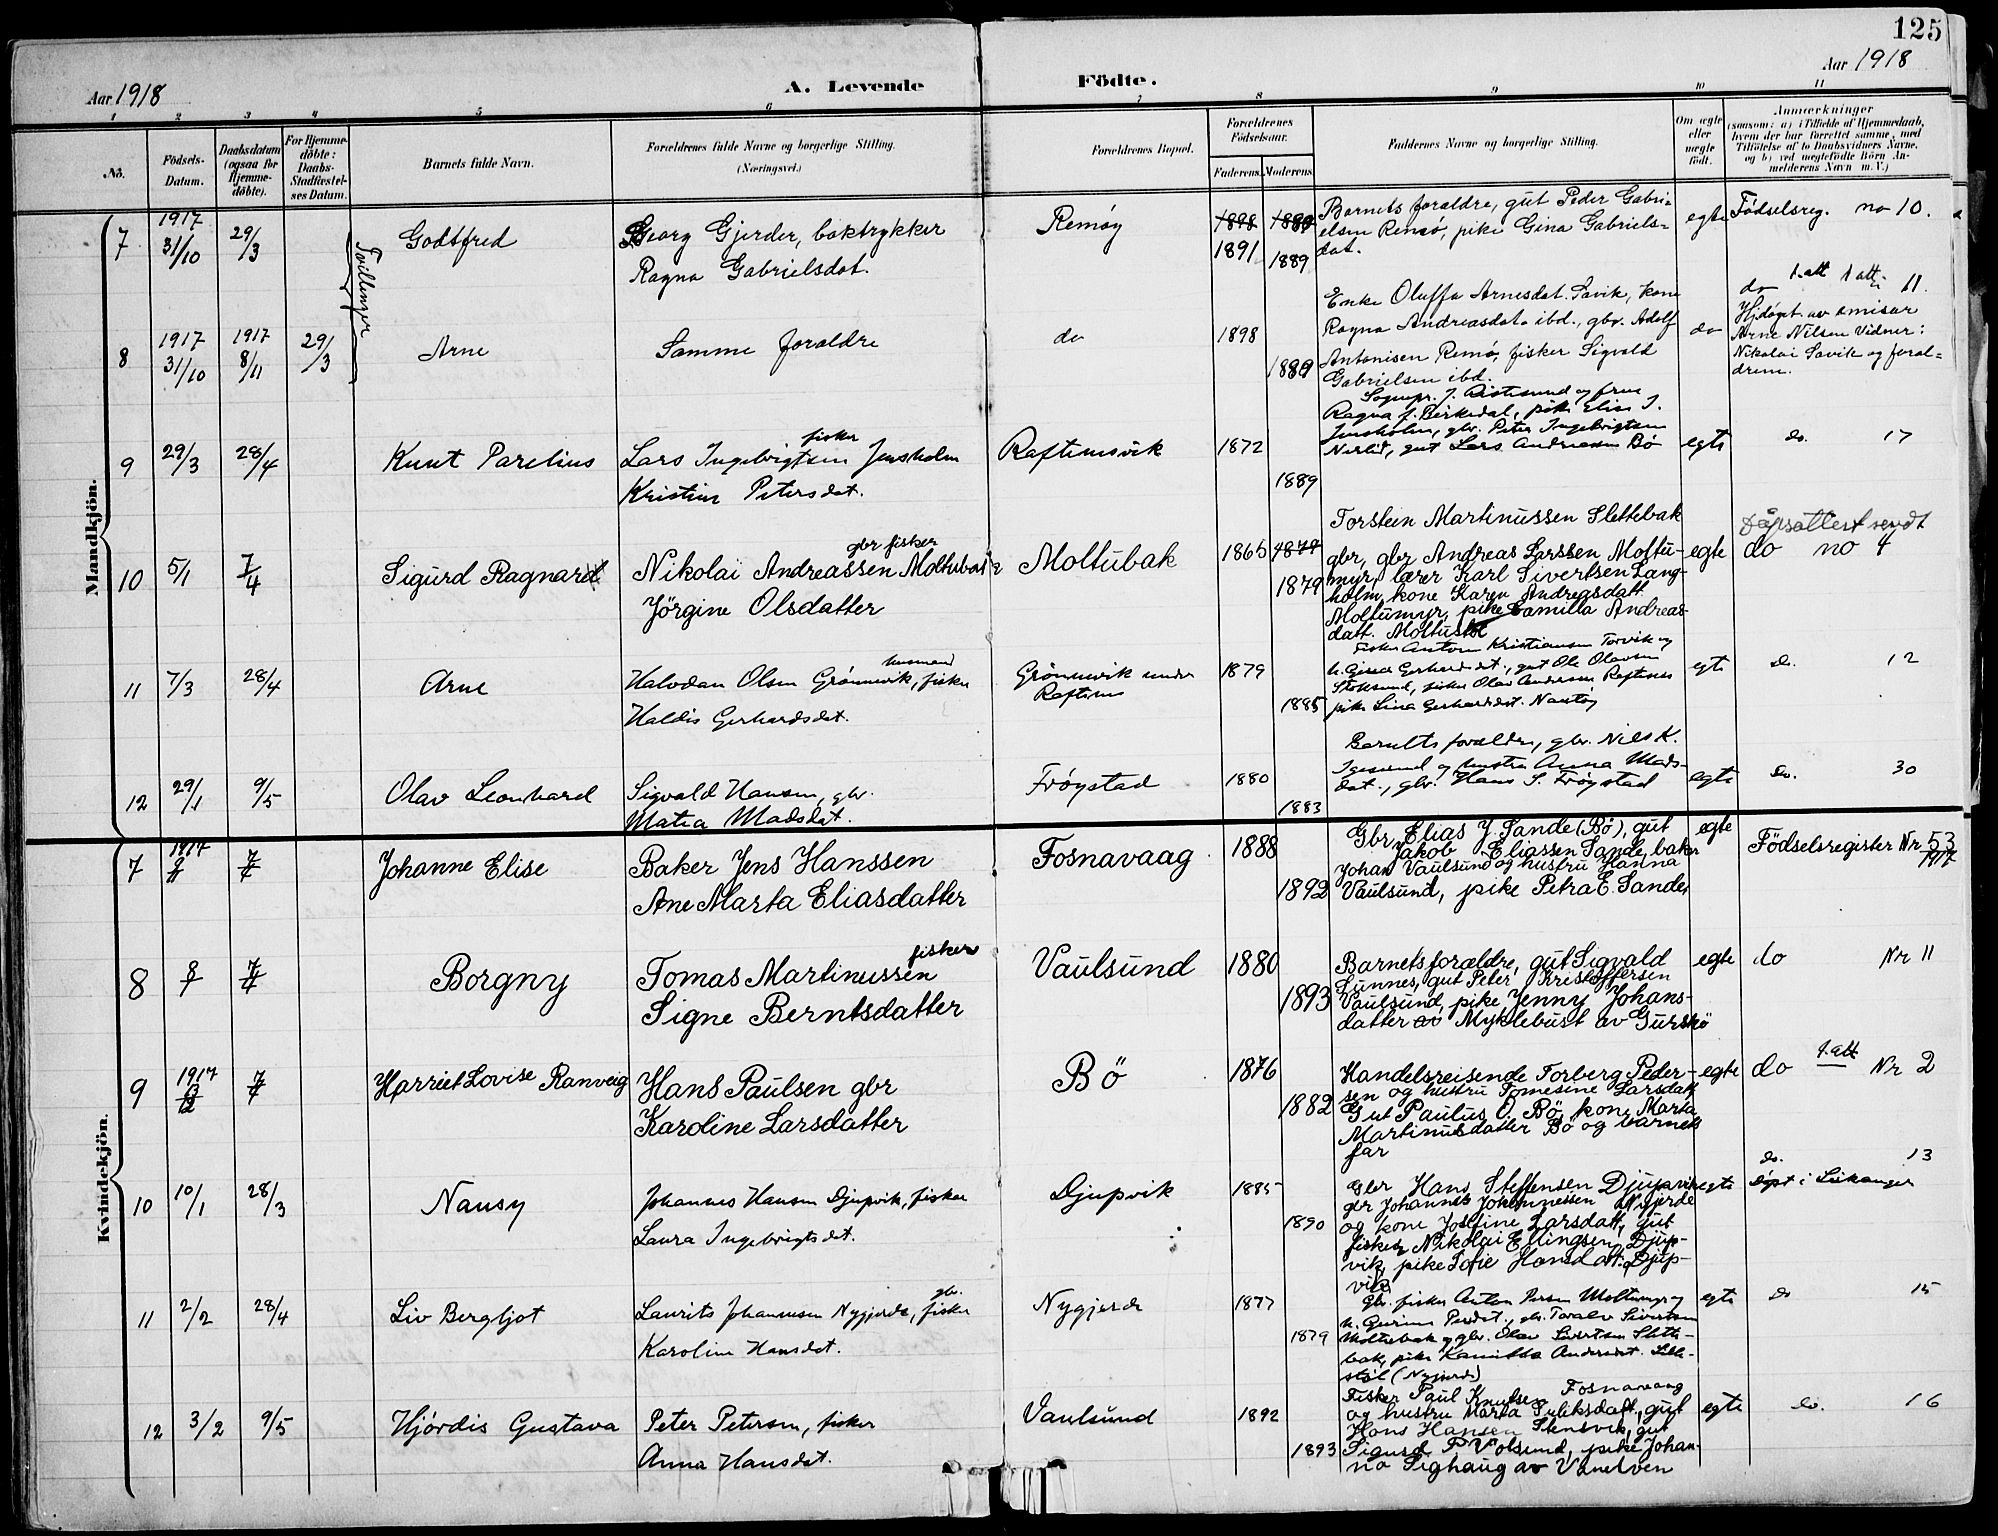 125
Aar 1918
A. Levende Födte.
Aar 1918
1 2 3 4 5 6 7 8 9 10 11
No.
Födsels-Datum.
Daabsdatum (ogsaa for Hjemmedöbte).
For Hjemmedöbte: Daabs-Stadfæstelses Datum.
Barnets fulde Navn.
Forældrenes fulde Navne og borgerlige Stilling.
(Næringsvei.)
Forældrenes Bopæl.
Forældrenes Födselsaar.
Faderens. Moderens.
Faddernes Navne og borgerlige Stilling.
Om ægte eller uægte födt.
Anmærkninger
(saasom: a) i Tilfælde af Hjemmedaab, hvem der har forrettet samme, med Tilföielse af to Daabsvidners Navne, og b) ved uægtefödte Börn Anmelderens Navn m.V.)
Mandkjön.
7
1917
31/10
29/3
Tvillinger
Godtfred
Georg Gjerder, boktrykker
Ragna Gabrielsdat.
Remøy
1898
1891
1889
Barnets foraldre, gut Peder Gabri-
elsen Remö, pike Gina Gabriels-
dat.
egte
Födselsreg. no 10.
8
1917
31/10
1917
8/11
29/3
Arne
Samme foraldre
do
1898
1889
Enke Oluffa Arnesdat. Savik, kone
Ragna Andreasdat. ibd., gbr. Adolf
Antonisen Remö, fisker Sigvald
Gabrielsen ibd.
do
1. att 1 att.
do 11.
Hjdøpt av emisær
Arne Nilsen Vidner:
Nikolai Savik og foral-
drene.
9
29/3
28/4
Knut Parelius
fisker
Lars Ingebrigtsen Jensholm
Kristine Petersdat.
Raftenesvik
1872
1889
Sogнepr. J. Aastesund og frue
Ragna f. Birkedal, pike Elise J.
Jensholm, gbr. Peter Ingebrigtsen
Nerlid, gut Lars Andreasen Bö
egte
do. 17
10
5/1
7/4
Sigurd Ragnard
gbr fisker
Nikolai Andreassen Moltubak
Jörgine Olsdatter
Moltubak
1865
1874
1879
Torstein Martinussen Slettebak
gbr, gbr Andreas Larssen Moltu-
myr, lærer Karl Sivertsen Lang-
holm, kone Karen Andreasdatt
Moltumyr, pike Camilla Andreas-
datt. Moltustöl
egte
Dåpsattest sendt
do no 4
11
7/3
28/4
Arne
husmand
Halvdan Olsen Grönnevik, fisker
Haldis Gerhardsdat.
Grönnevik under
Raftenes
1879
1885
Fisker Anton Kristiansen Torvik og
h. Gina Gerhardsdat., gut Ole Olavsen
Stoksund, fisker Olav Andersen Raftenes
pike Lina Gerhardsdat. Nautöy
egte
do. 12
12
29/1
9/5
Olav Leonhard
Sigvald Hansen, gbr.
Matea Madsdat.
Fröystad
1880
1883
Barnets forældre, gbr. Nils K.
Igesund og hustru Anna Mads-
dat., gbr. Hans S. Fröystad
egte
do. 30
Kvindekjön.
7
1917
7/4
Johanne Elise
Baker Jens Hanssen
Ane Marta Eliasdatter
Fosnavaag
1888
1892
Gbr. Elias J. Sande (Bö), gut
Jakob Eliassen Sande, baker
Johan Vaulsund og hustru Hanna
Vaulsund, pike Petra E. Sande,
egte
Födselsregister Nr 53
1917
8
8/1
7/4
Borgny
fisker
Tomas Martinussen
Signe Berntsdatter
Vaulsund
1880
1893
Barnets forældre, gut Sigvald
Sunnes, gut Peter Kristoffersen
Vaulsund, pike Jenny Johans-
datter Myklebust av Gurskö
egte
do Nr 11
9
1917
7/4
Harriet Lovise Ranveig
Hans Paulsen gbr
Karoline Larsdatter
Bö
1876
1882
Handelsreisende Torberg Peder-
sen og hustru Tomesine Larsdatt
Gut Paulus O. Bö, kone Marta
Martinusdatter Bö og barnets
far
egte
1. att
do Nr 2
10
10/1
28/3
Nansy
Johannes Hansen Djupvik, fisker
Laura Ingebrigtsdat.
Djupvik
1885
1890
Gbr Hans Steffensen Djupvik
gbr Johannes Johannessen Nygjerde
og kone Josefine Larsdatt, gut
fisker Nikolai Ellingsen Djup-
vik, pike Sofie Hansdatt. Djup-
vik
egte
do. 13
Döpt i Leikanger
11
2/2
28/4
Liv Bergljot
gbr.
Laurits Johannesen Nygjerde, fisker
Karoline Hansdat.
Nygjerde
1877
1879
Gbr. fisker Anton Persen Moltumyr og
h. Gurine Persdat., gbr. Toralv Sivertsen
Moltubak og gbr. Olav Sivertsen Slette-
bak, pike Kamilla Andersdat. Slette-
stöl (Nygjerde)
egte
do 15
12
3/2
9/5
Hjördis Gustava
Peter Petersen, fisker
Anna Hansdat.
Vaulsund
1892
1893
Fisker Paul Knutsen Fosnavaag
og hustru Marta Suleksdatt., gut
Hans Hansen Stensvik, gut
Sigurd P. Volsund, pike Johan-
na Sighaug av Vanelven
egte
do. 16